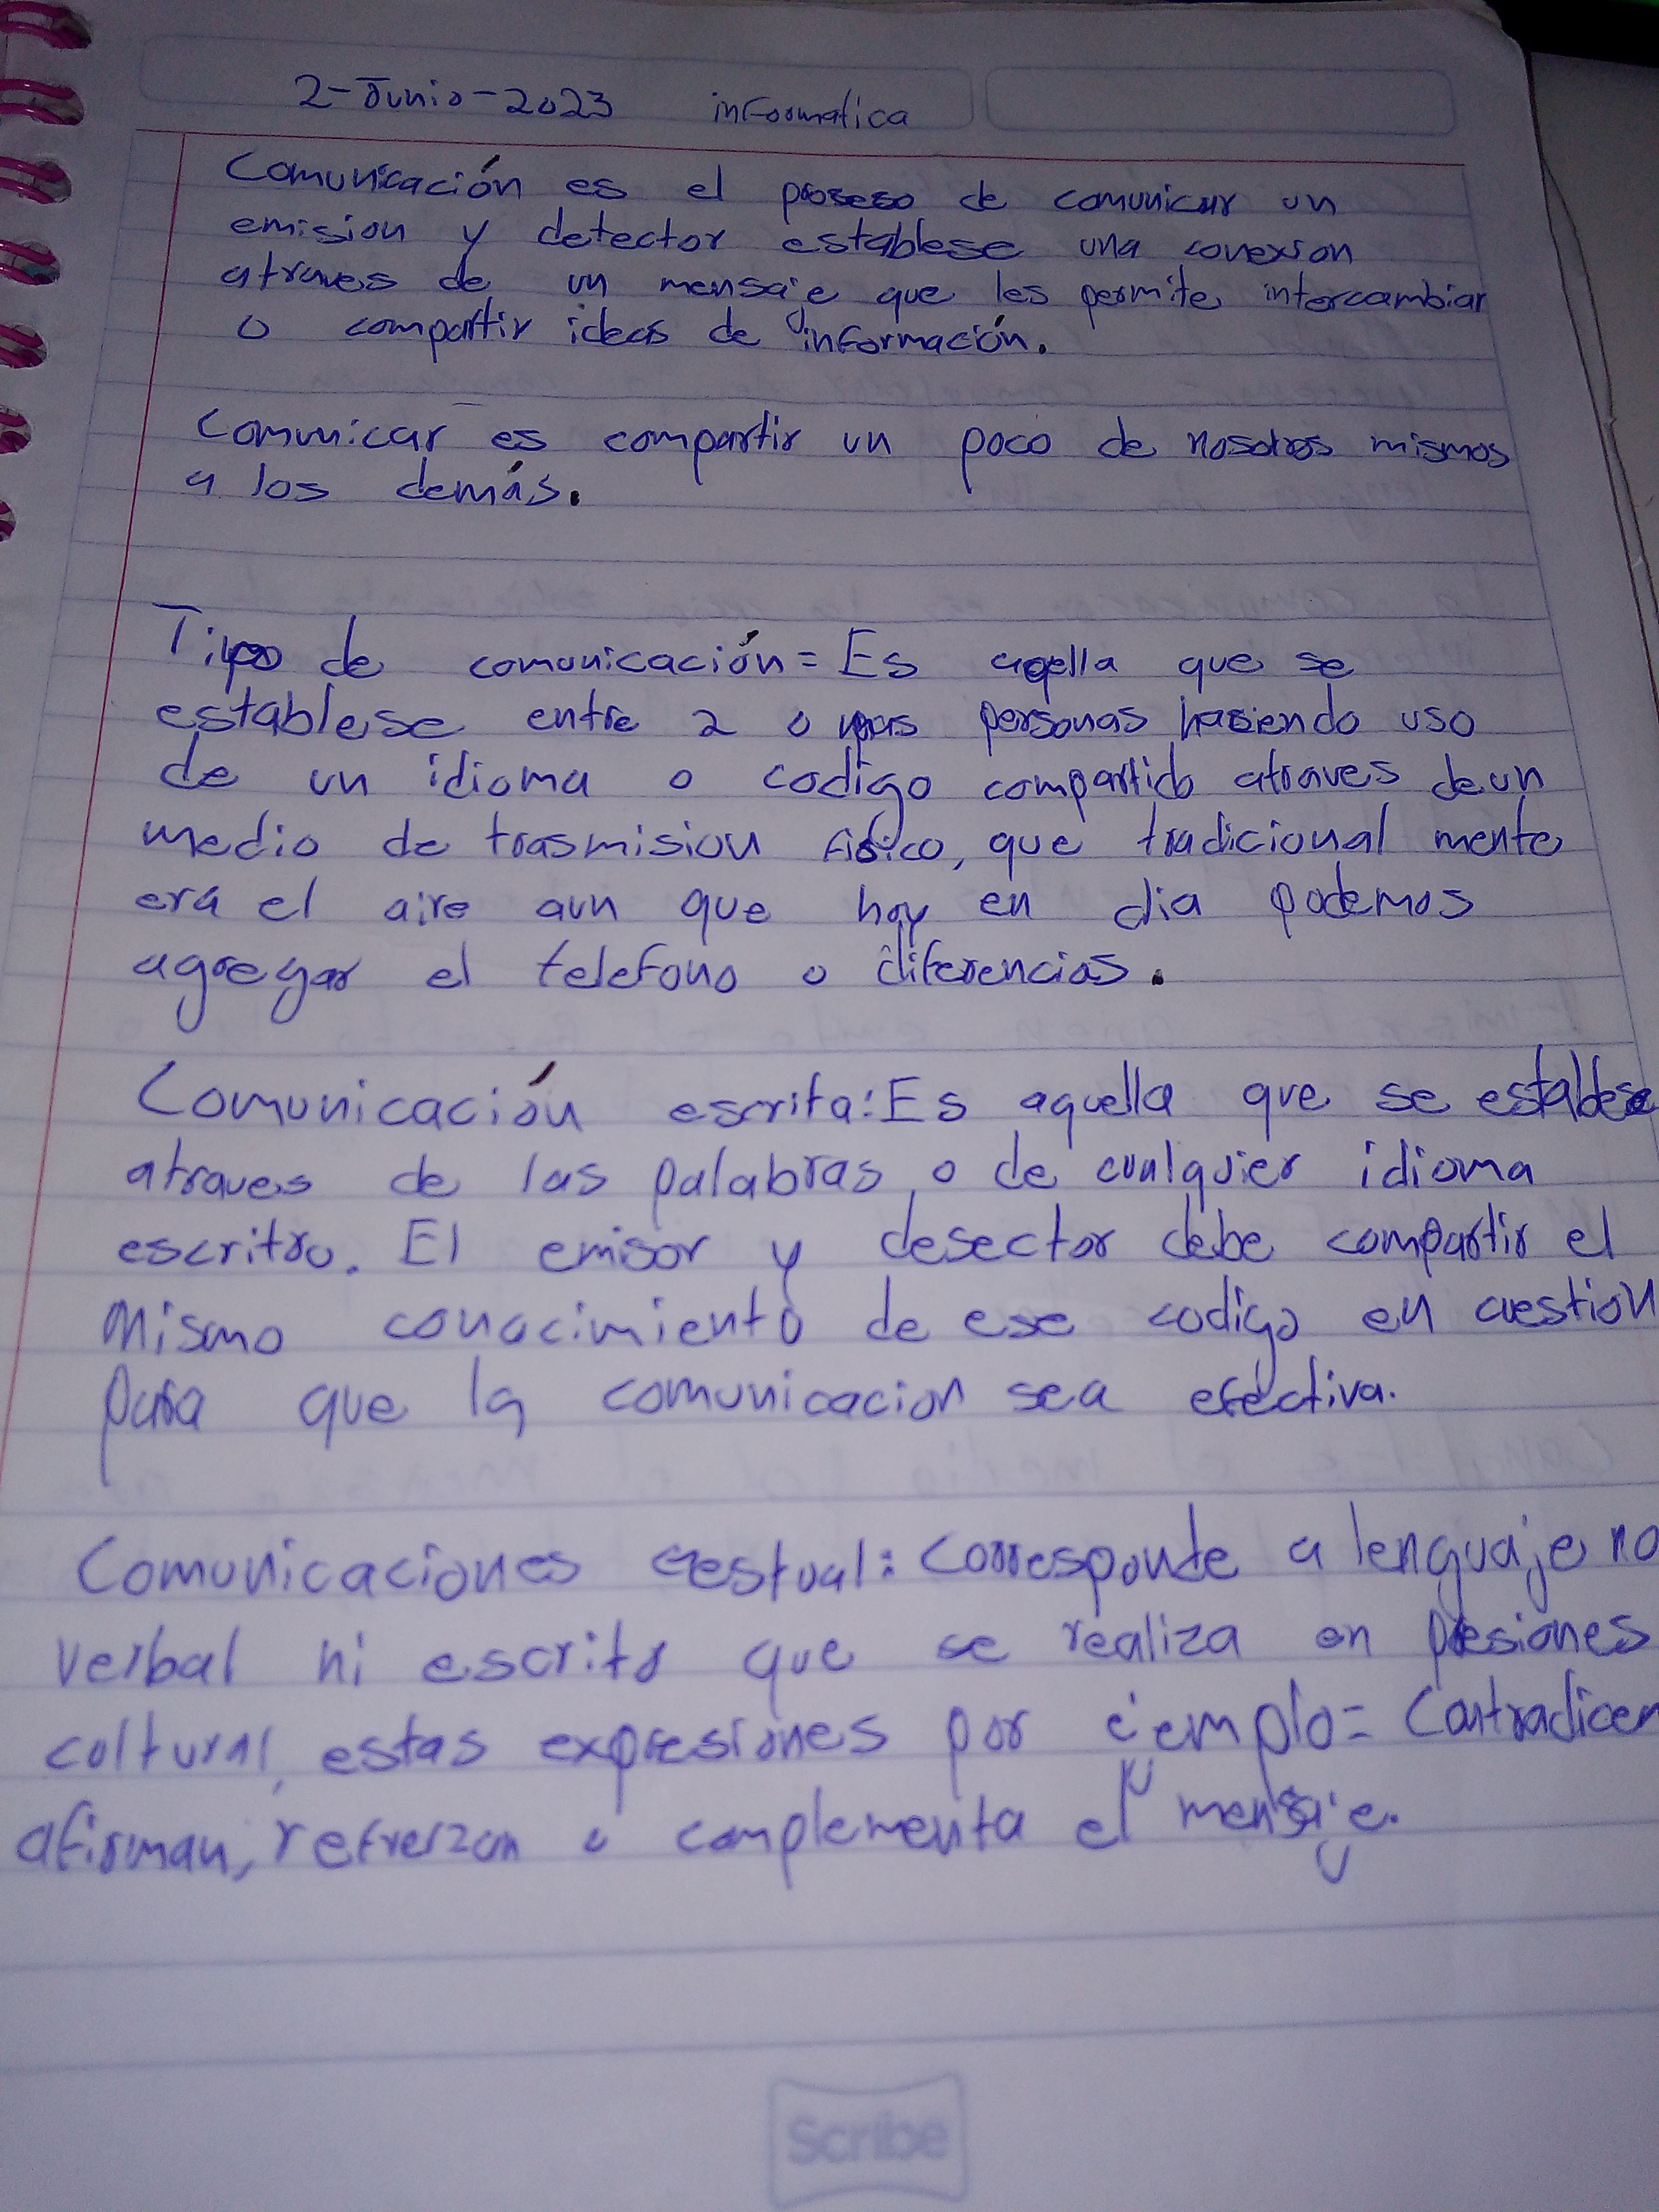 2-Junio-2023 informatica
Comunicación es el proseso de comunicar un
emision y detector establese una conexion
atraves de un mensaje que les permite intercambiar
o compartir ideas de información.
Comunicar es compartir un poco de nosotros mismos
a los demás.
Tipo de comunicación= Es aqella que se
establese entre 2 o mas personas hasiendo uso
de un idioma o codigo compartido atraves de un
medio de trasmision fisico, que tradicional mente
era el aire aun que hoy en dia podemos
agregar el telefono o diferencias.
Comunicación escrita: Es aquella que se establese
atraves de las palabras, o de cualquier idioma
escritro. El emisor y desector debe compartir el
mismo conocimiento de ese codigo en cuestion
para que la comunicacion sea efectiva.
Comunicaciones gestual: Corresponde a lenguaje no
verbal ni escrito que se realiza en presiones
coltural, estas expresiones por ejemplo= Contradicen
afirman, refuerzan o complementa el mensaje.
Scribe